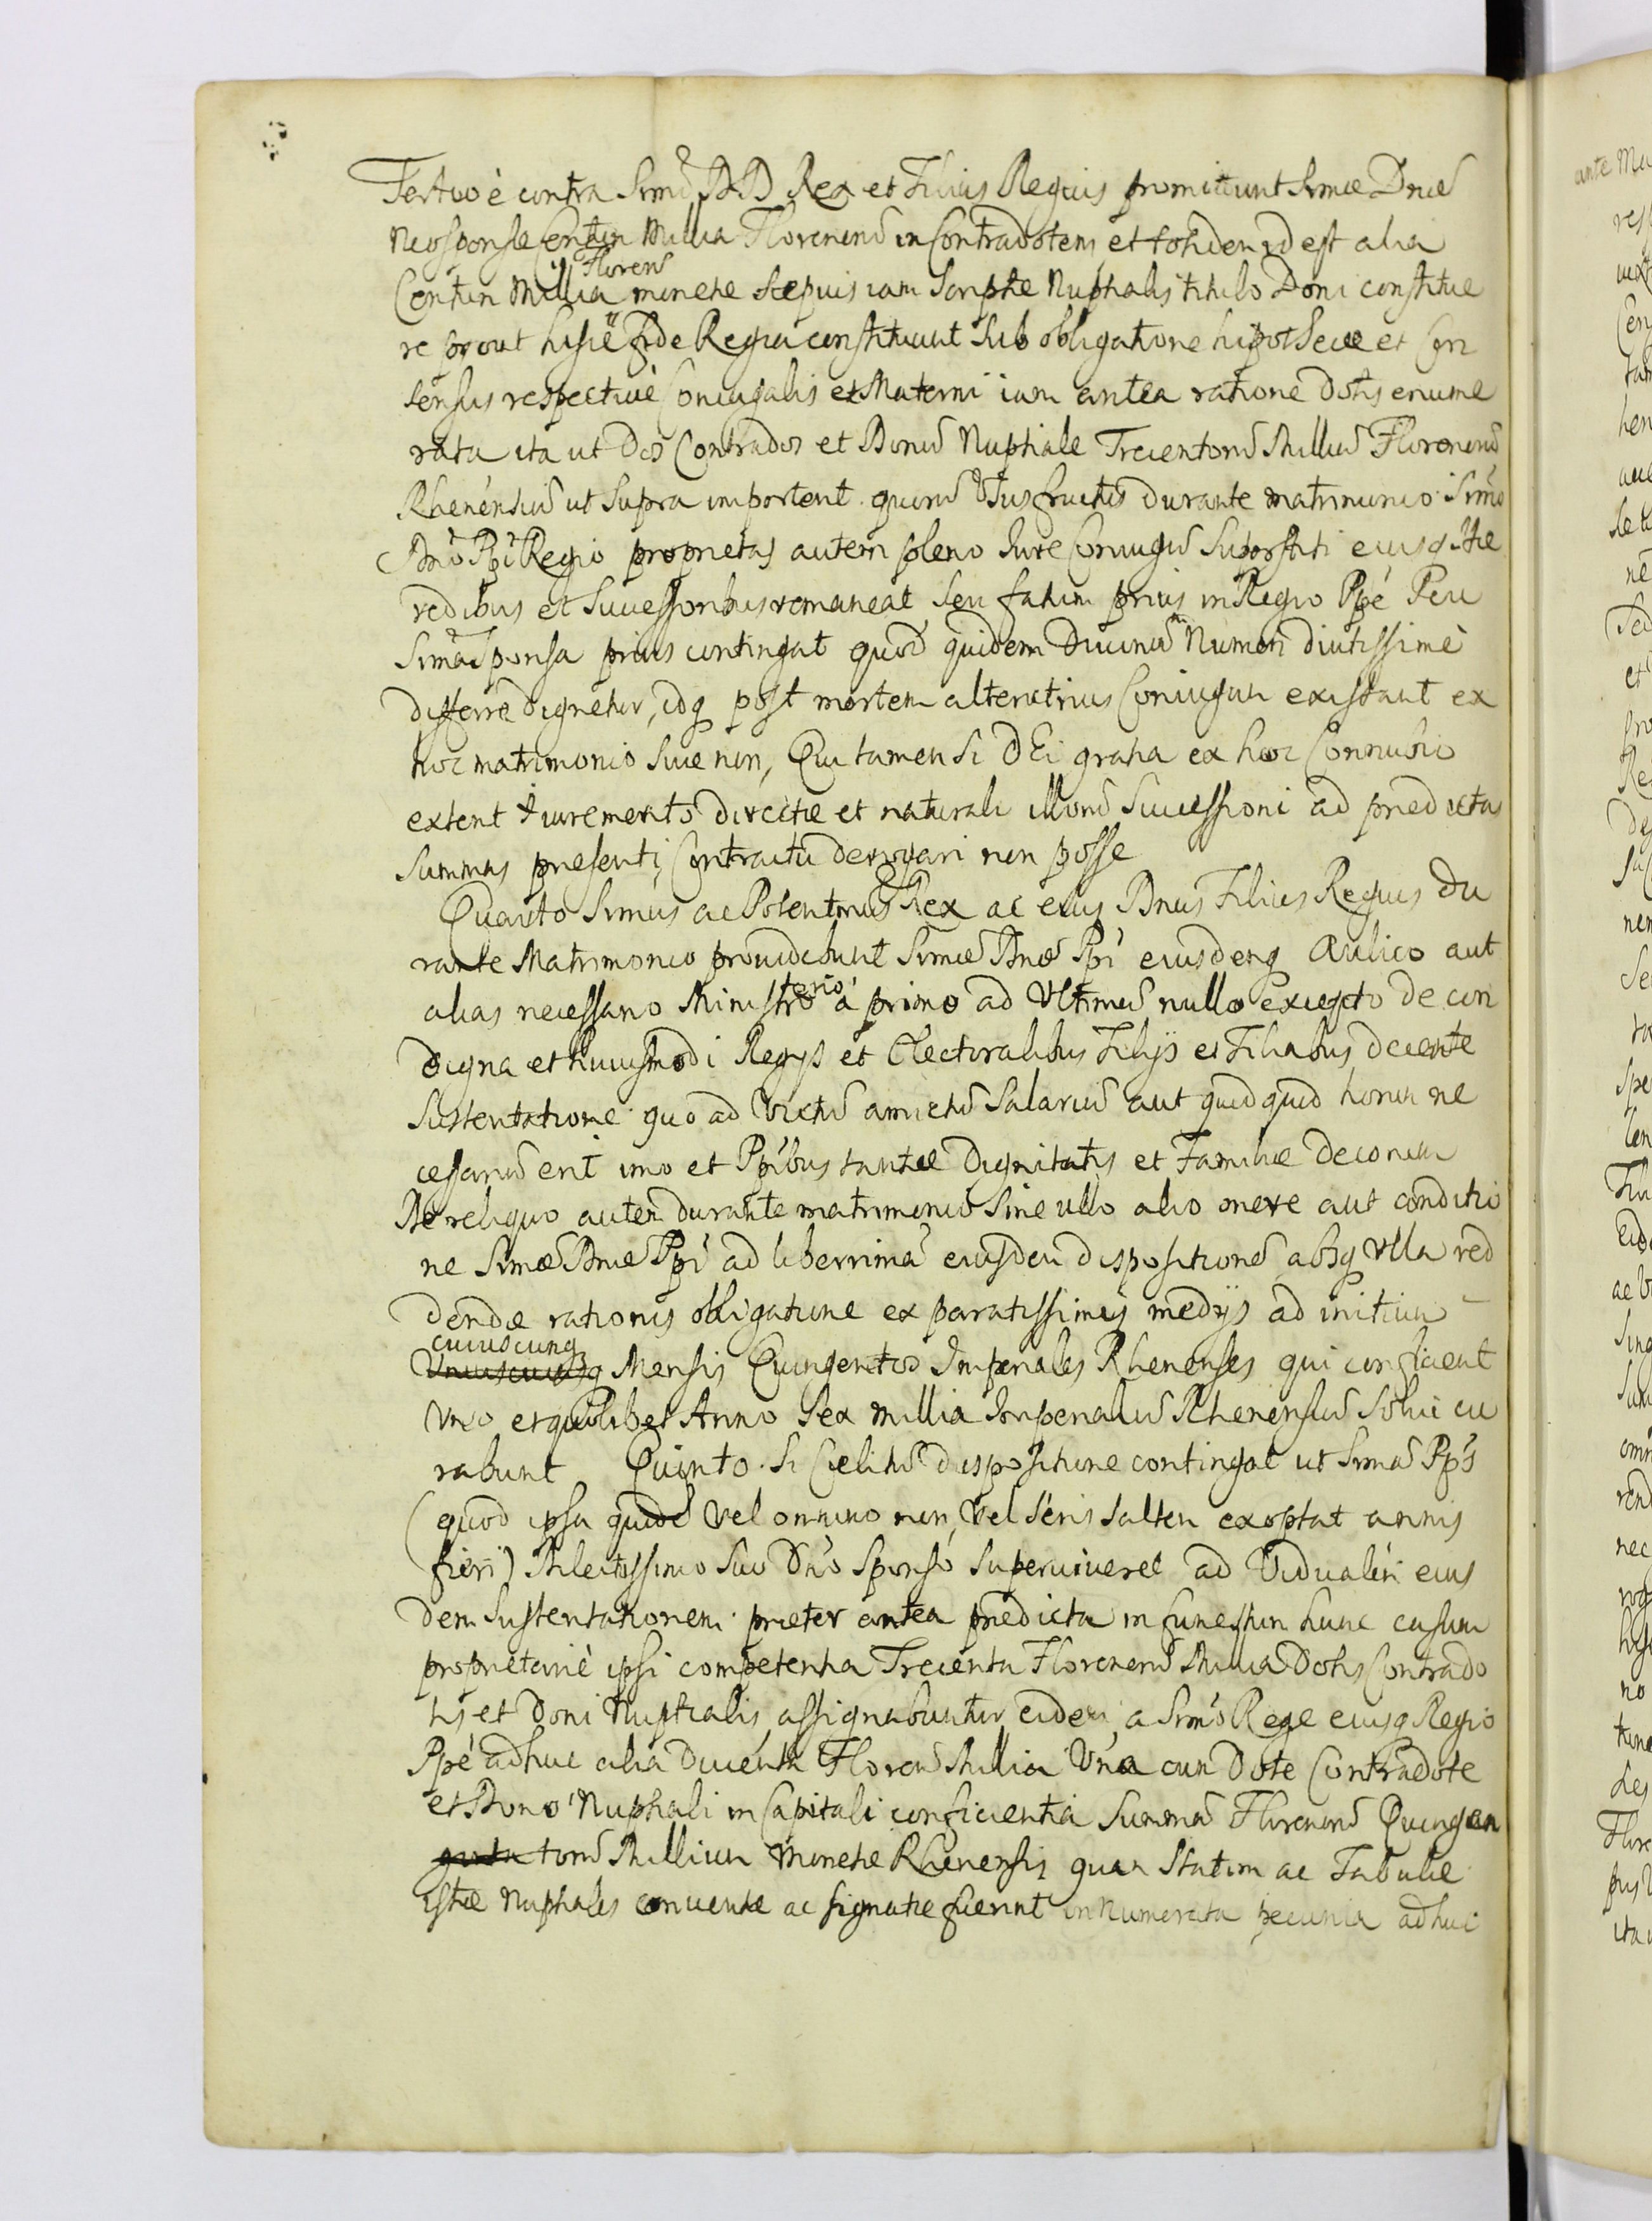 Tertio è contra Srmi DD Rex et Filius Regius promittunt Srmæ Dnæ
Neosponsæ Centum Millia Florenorũ in Contradotem, et totidem id est alia
Centum Millia Florenũ monetæ sæpius iam scriptæ Nuptialis titulo Doni constitue
re prout hisce fide Regia constituunt sub obligatione hipothecæ et Con
sensus respectiuè Coniugalis et Materni iam antea ratione dotis enume
rata ita ut Dos Contrados et Donũ Nuptiale Trecentorũ Milliũ Florenorũ
Rhenensiũ ut supra important. quorũ Vsusfructus durante matrimonio Srmo
Dno Ppi Regio proprietas autem pleno Iure Coniugũ superstiti eiusq Hæ
redibus et Successoribus remaneat seu fatum prius in Regio Ppé seu
Srmã Sponsa prius contingat quod quidem Diuinũ Numen diutissimè
differre dignetur, idq post mortem alterutrius Coniugum existant ex
hoc matrimonio siue non, Qui tamen si DEi gratia ex hoc Connubio
extent iure merito directæ et naturali illorũ Successioni ad prædictas
summas præsenti Contractu derogari non posse
Quarto Srmus ac Potentmus Rex ac eius Dnus Filius Regius du
rante Matrimonio prouidebunt Srmæ Dnæ Ppi eiusdemq Aulico aut
alias necessario Ministerio à primo ad Vltimũ nullo excepto de con
digna et huiusmodi Regijs et Electoralibus Filijs et Filiabus decente
sustentatione quo ad Victũ amictũ Salariũ aut quidquid horum ne
cessariũ erit imo et Ppibus tantæ Dignitatis et Familiæ decorum
De reliquo autem durante matrimonio sine ullo alio onere aut conditio
ne Srmæ Dnæ Ppi ad liberrimã eiusdem dispositionẽ absq Vlla red
dendæ rationis obligatione ex paratissimis medijs ad initium
cuiuscunq
Vniuscuiusq Mensis Quingentos Imperiales Rhenenses qui conficient
Vno et quolibet Anno Sex millia Imperialiũ Rhenensiũ solui cu
rabunt Quinto. Si Cælitũ dispositione contingat ut Srma Pp's
(quod ipsa quidẽ Vel omnino non, Vel seris saltem exoptat annis
fieri) Dilectissimo suo Dno Sponso superuiueret ad Vidualem eius
dem sustentationem præter antea prædicta in funestum hunc casum
proprietariè ipsi competentia Trecenta Florenorũ Millia Dotis Contrado
tis et Doni Nuptialis assignabuntur eidem a Srmo Rege eiusq Regio
Ppé adhuc alia Ducenta Florenũ Millia Vna cum Dote Contradote
et Dono Nuptiali in Capitali conficientia Summã Florenorũ Quingen
torũ Millium Monetæ Rhenensis quam statim ac Tabulæ
istæ Nuptiales conuentæ ac signatæ fuerint in numerata pecunia adhuc